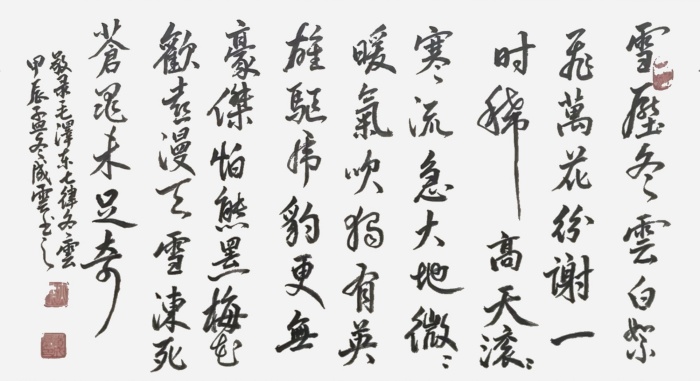 雪壓冬雲白絮
飛萬花紛謝一
时稀高天滾〻
寒流急大地微〻
暖氣吹獨有英
雄驅虎豹更無
豪傑怕熊羆梅花
歡喜漫天雪凍死
蒼蠅未足奇
敬录毛澤东七律冬雲
甲辰孟冬成雲书之